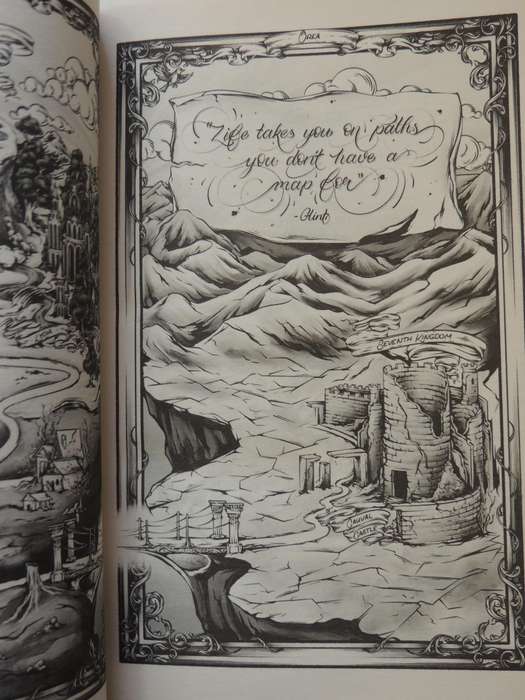 Orea
"Life takes you on paths
you don't have a
map for"
Seventh Kingdom
Cauval
Castle